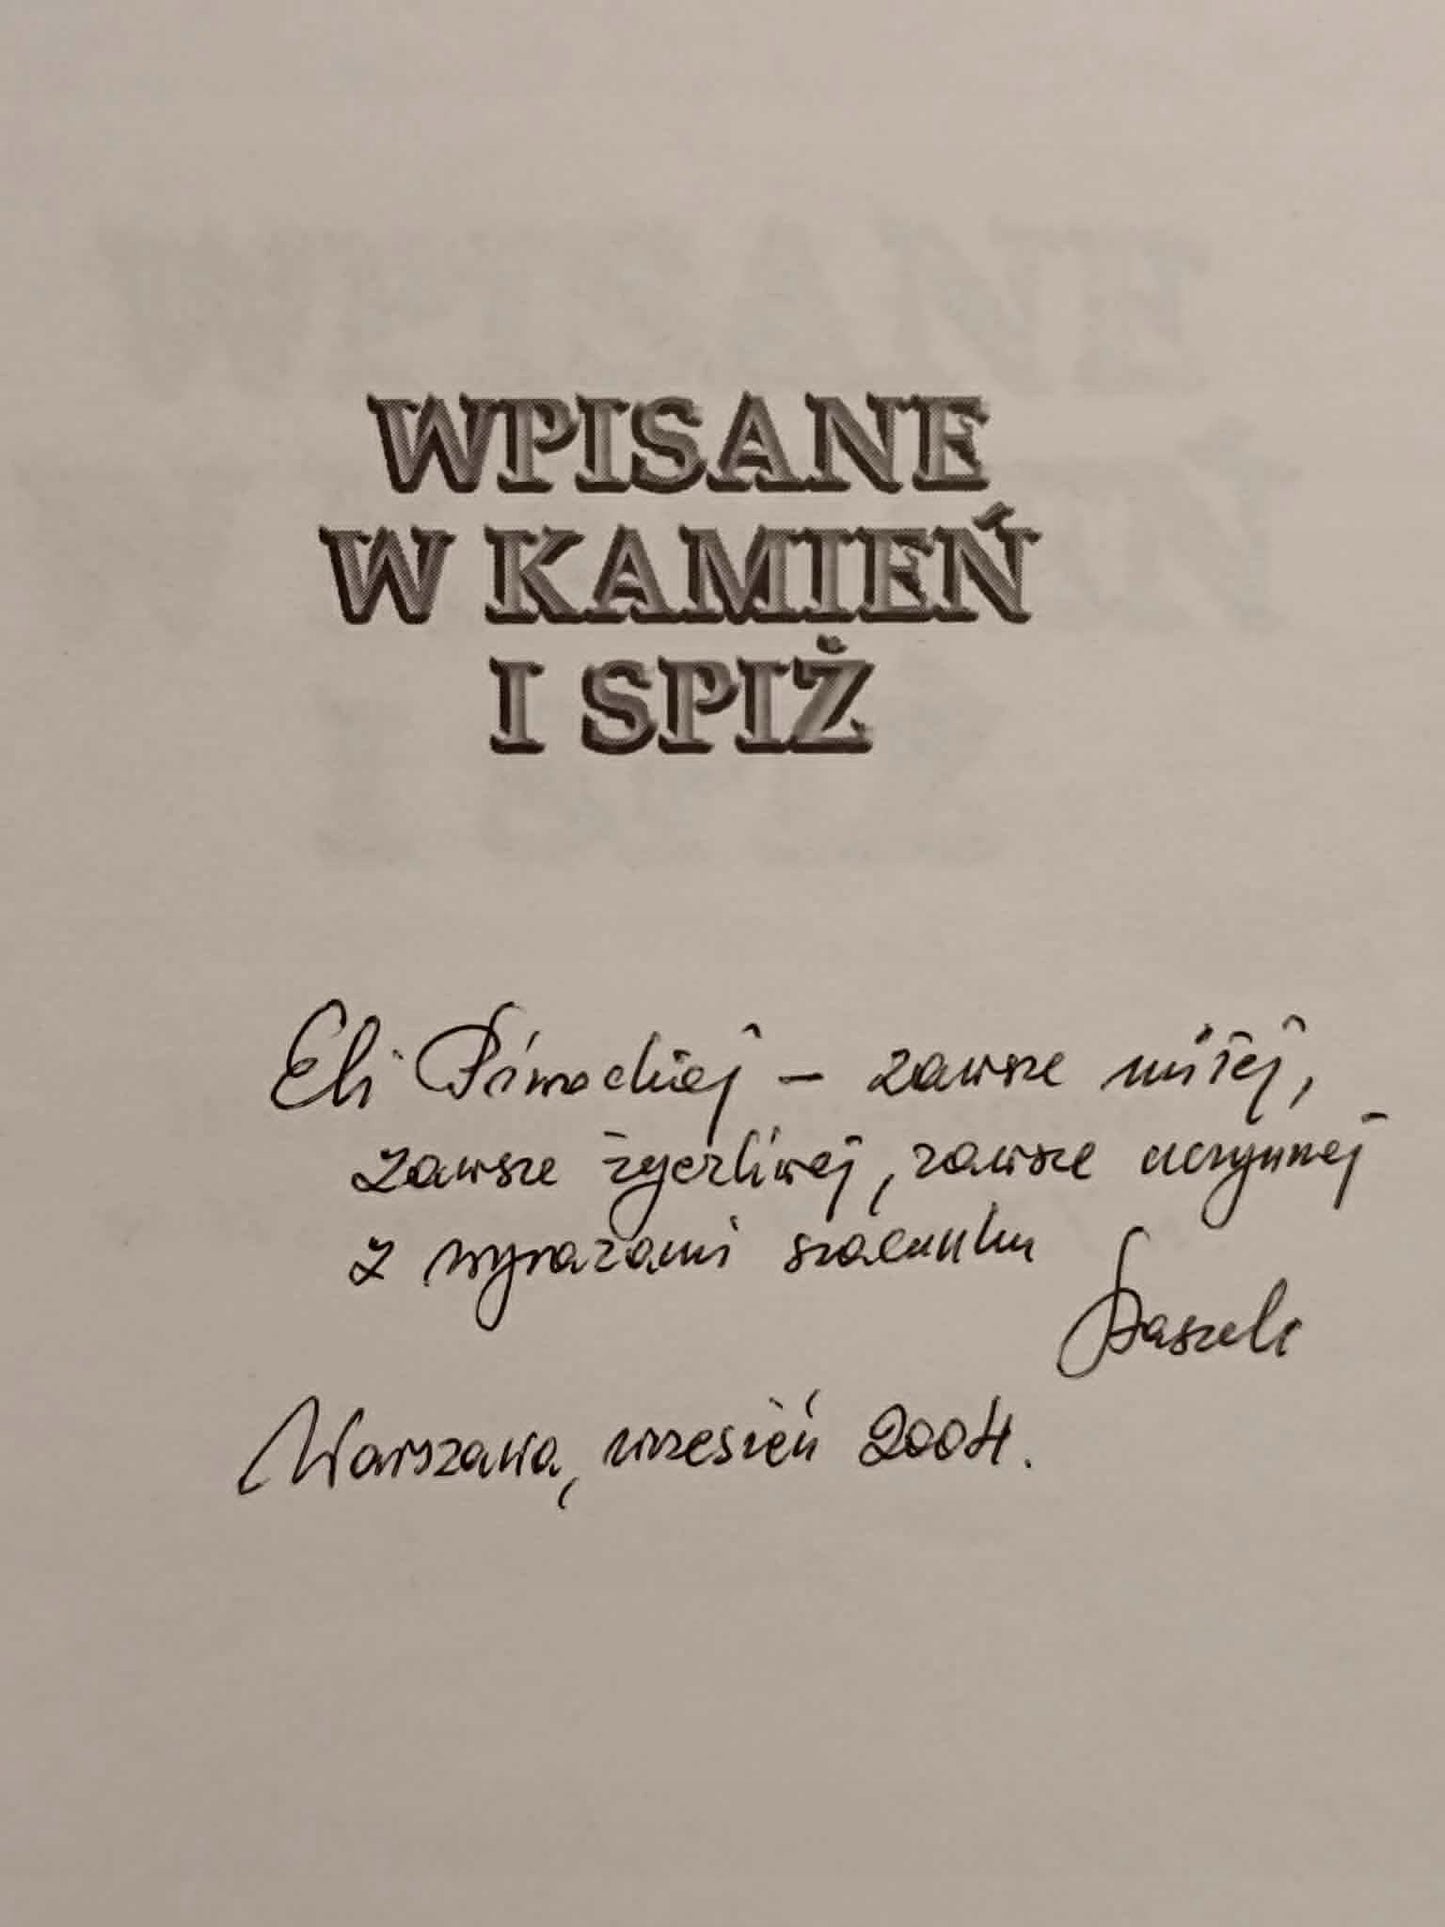 WPISANE
W KAMIEŃ
I SPIŻ
Eli – zawsze miłej,
zawsze życzliwej, zawsze uczynnej
z wyrazami szacunku
Staszek
Warszawa, wrzesień 2004.